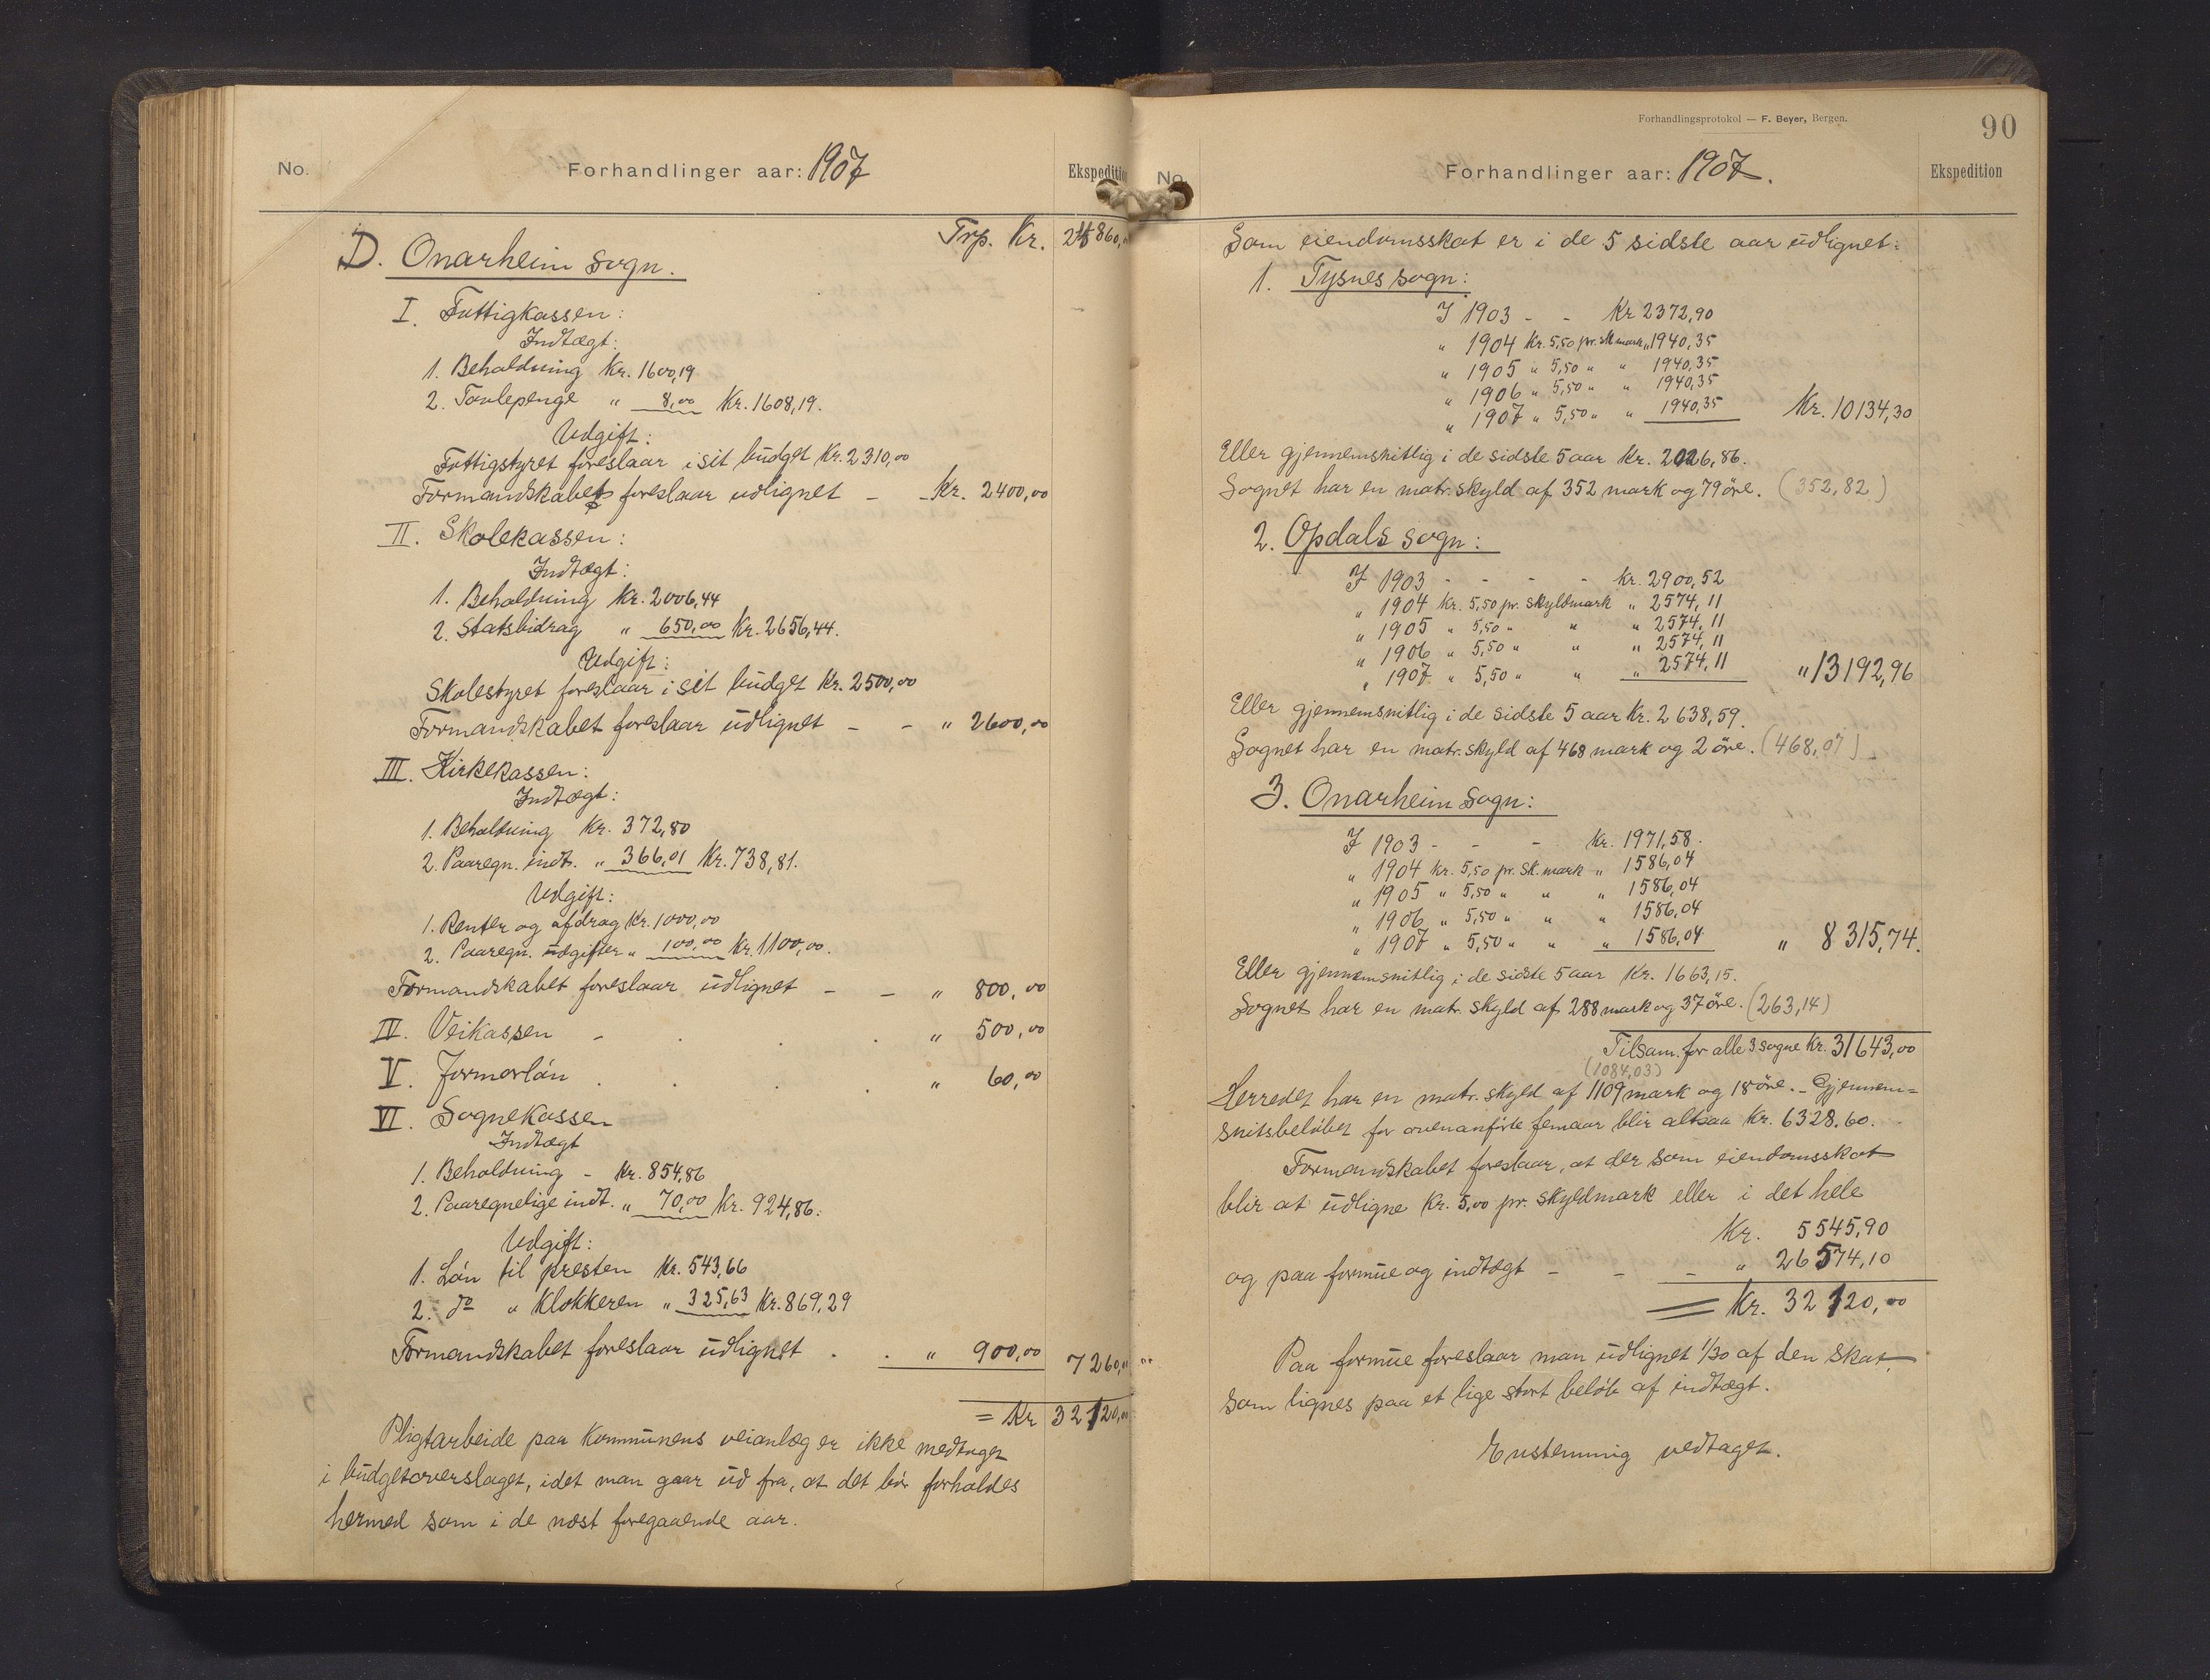 No. Forhandlinger aar: 1907 Ekspedition
Trp. Kr. 24860,00
D. Onarheim sogn.
I. Fattigkassen:
Indtægt:
1. Beholdning Kr. 1600,19
2. Tavlepenge " 8,00 Kr. 1608,19.
Udgift:
Fattigstyret foreslaar i sit budget Kr. 2310,00
Formandskabet foreslaar udlignet - - Kr. 2400,00
II. Skolekassen:
Indtægt:
1. Beholdning Kr. 2006,44
2. Statsbidrag " 650,00 Kr. 2656,44.
Udgift:
Skolestyret foreslaar i sit budget Kr. 2500,00
Formandskabet foreslaar udlignet - - " 2600,00
III. Kirkekassen:
Indtægt:
1. Beholdning Kr. 372,80
2. Paaregn. indt. " 366,01 Kr. 738,81.
Udgift:
1. Renter og afdrag Kr. 1000,00
2. Paaregn. udgifter " 100,00 Kr. 1100,00.
Formandskabet foreslaar udlignet - - " 800,00
IV. Veikassen - . . . " 500,00
V. Jormorlán . . . . " 60,00
VI. Sognekassen
Indtægt
1. Beholdning - Kr. 854,86
2. Paaregnelige indt. " 70,00 Kr. 924,86.
Udgift:
1. Lán til presten Kr. 543,66
2. do " Klokkeren " 325,63 Kr. 869,29
Formandskabet foreslaar udlignet . . " 900,00 7260,00
= Kr 32120,00
Pligtarbeide paa Kommunens veianlæg er ikke medtaget
i budgetoverslaget, idet man gaar ud fra, at det bör forholdes
hermed som i de næst foregaaende aar.
Forhandlingsprotokol — F. Beyer, Bergen.
90
No. Forhandlinger aar: 1907. Ekspedition
Som eiendomsskat er i de 5 sidste aar udlignet:
1. Tysnes sogn:
I 1903 - - Kr 2372,90
" 1904 Kr. 5,50 pr. sk mark " 1940,35
" 1905 " 5,50 " " 1940,35
" 1906 " 5,50 " " 1940,35
" 1907 " 5,50 " " 1940,35 Kr. 10134,30
Eller gjennemsnitlig i de sidste 5 aar Kr. 2026,86.
Sognet har en matr. skyld af 352 mark og 79 öre. (352,82)
2. Opdals sogn:
I 1903 - - - - Kr. 2900,52
" 1904 Kr. 5,50 pr. skyldmark " 2574,11
" 1905 " 5,50 " " " 2574,11
" 1906 " 5,50 " " " 2574,11
" 1907 " 5,50 " " " 2574,11 " 13192,96
Eller gjennemsnitlig i de sidste 5 aar Kr. 2638,59.
Sognet har en matr. skyld af 468 mark og 2 öre. (468,07)
3. Onarheim sogn:
I 1903 - - - Kr. 1971,58.
" 1904 Kr. 5,50 pr. sk. mark " 1586,04
" 1905 " 5,50 " " " 1586,04
" 1906 " 5,50 " " " 1586,04
" 1907 " 5,50 " " " 1586,04 " 8315,74.
Eller gjennemsnitlig i de sidste 5 aar Kr. 1663,15.
Sognet har en matr. skyld af 288 mark og 37 öre. (263,14)
Tilsam. for alle 3 sogne Kr. 31643,00
(1084,03)
Herredet har en matr. skyld af 1109 mark og 18 öre. - Gjennem=
snitsbelöbet for ovenanförte femaar blir altsaa Kr. 6328.60.
Formandskabet foreslaar, at der som eiendomsskat
blir at udligne Kr. 5,00 pr. skyldmark eller i det hele
Kr. 5545,90
og paa formue og indtægt - - - " 26574,10
= Kr. 32120,00
Paa formue foreslaar man udlignet 1/30 af den skat,
som lignes paa et lige stort belöb af indtægt.
Enstemmig vedtaget.